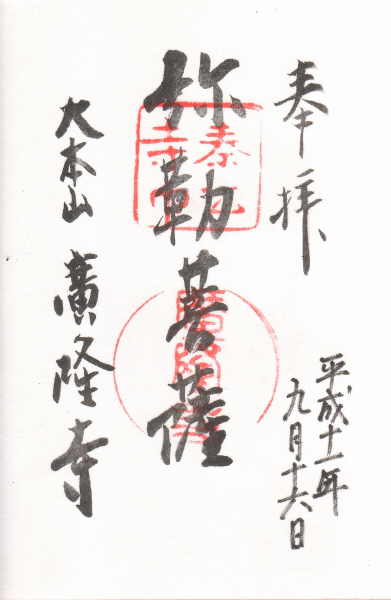 奉拝
平成十一年
九月十六日
弥勒菩薩
大本山 廣隆寺